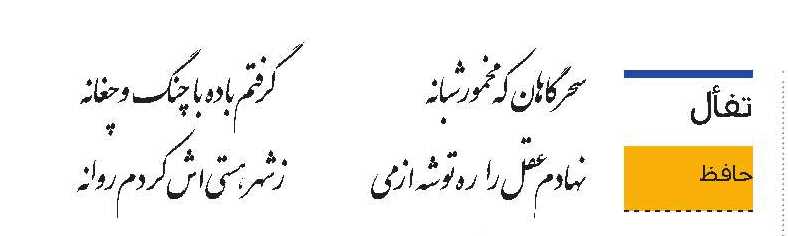 تفأل
حافظ
سحرگاهان که مخمور شبانه
گرفتم باده با چنگ و چغانه
نهادم عقل را ره توشه از می
ز شهر هستی‌اش کردم روانه